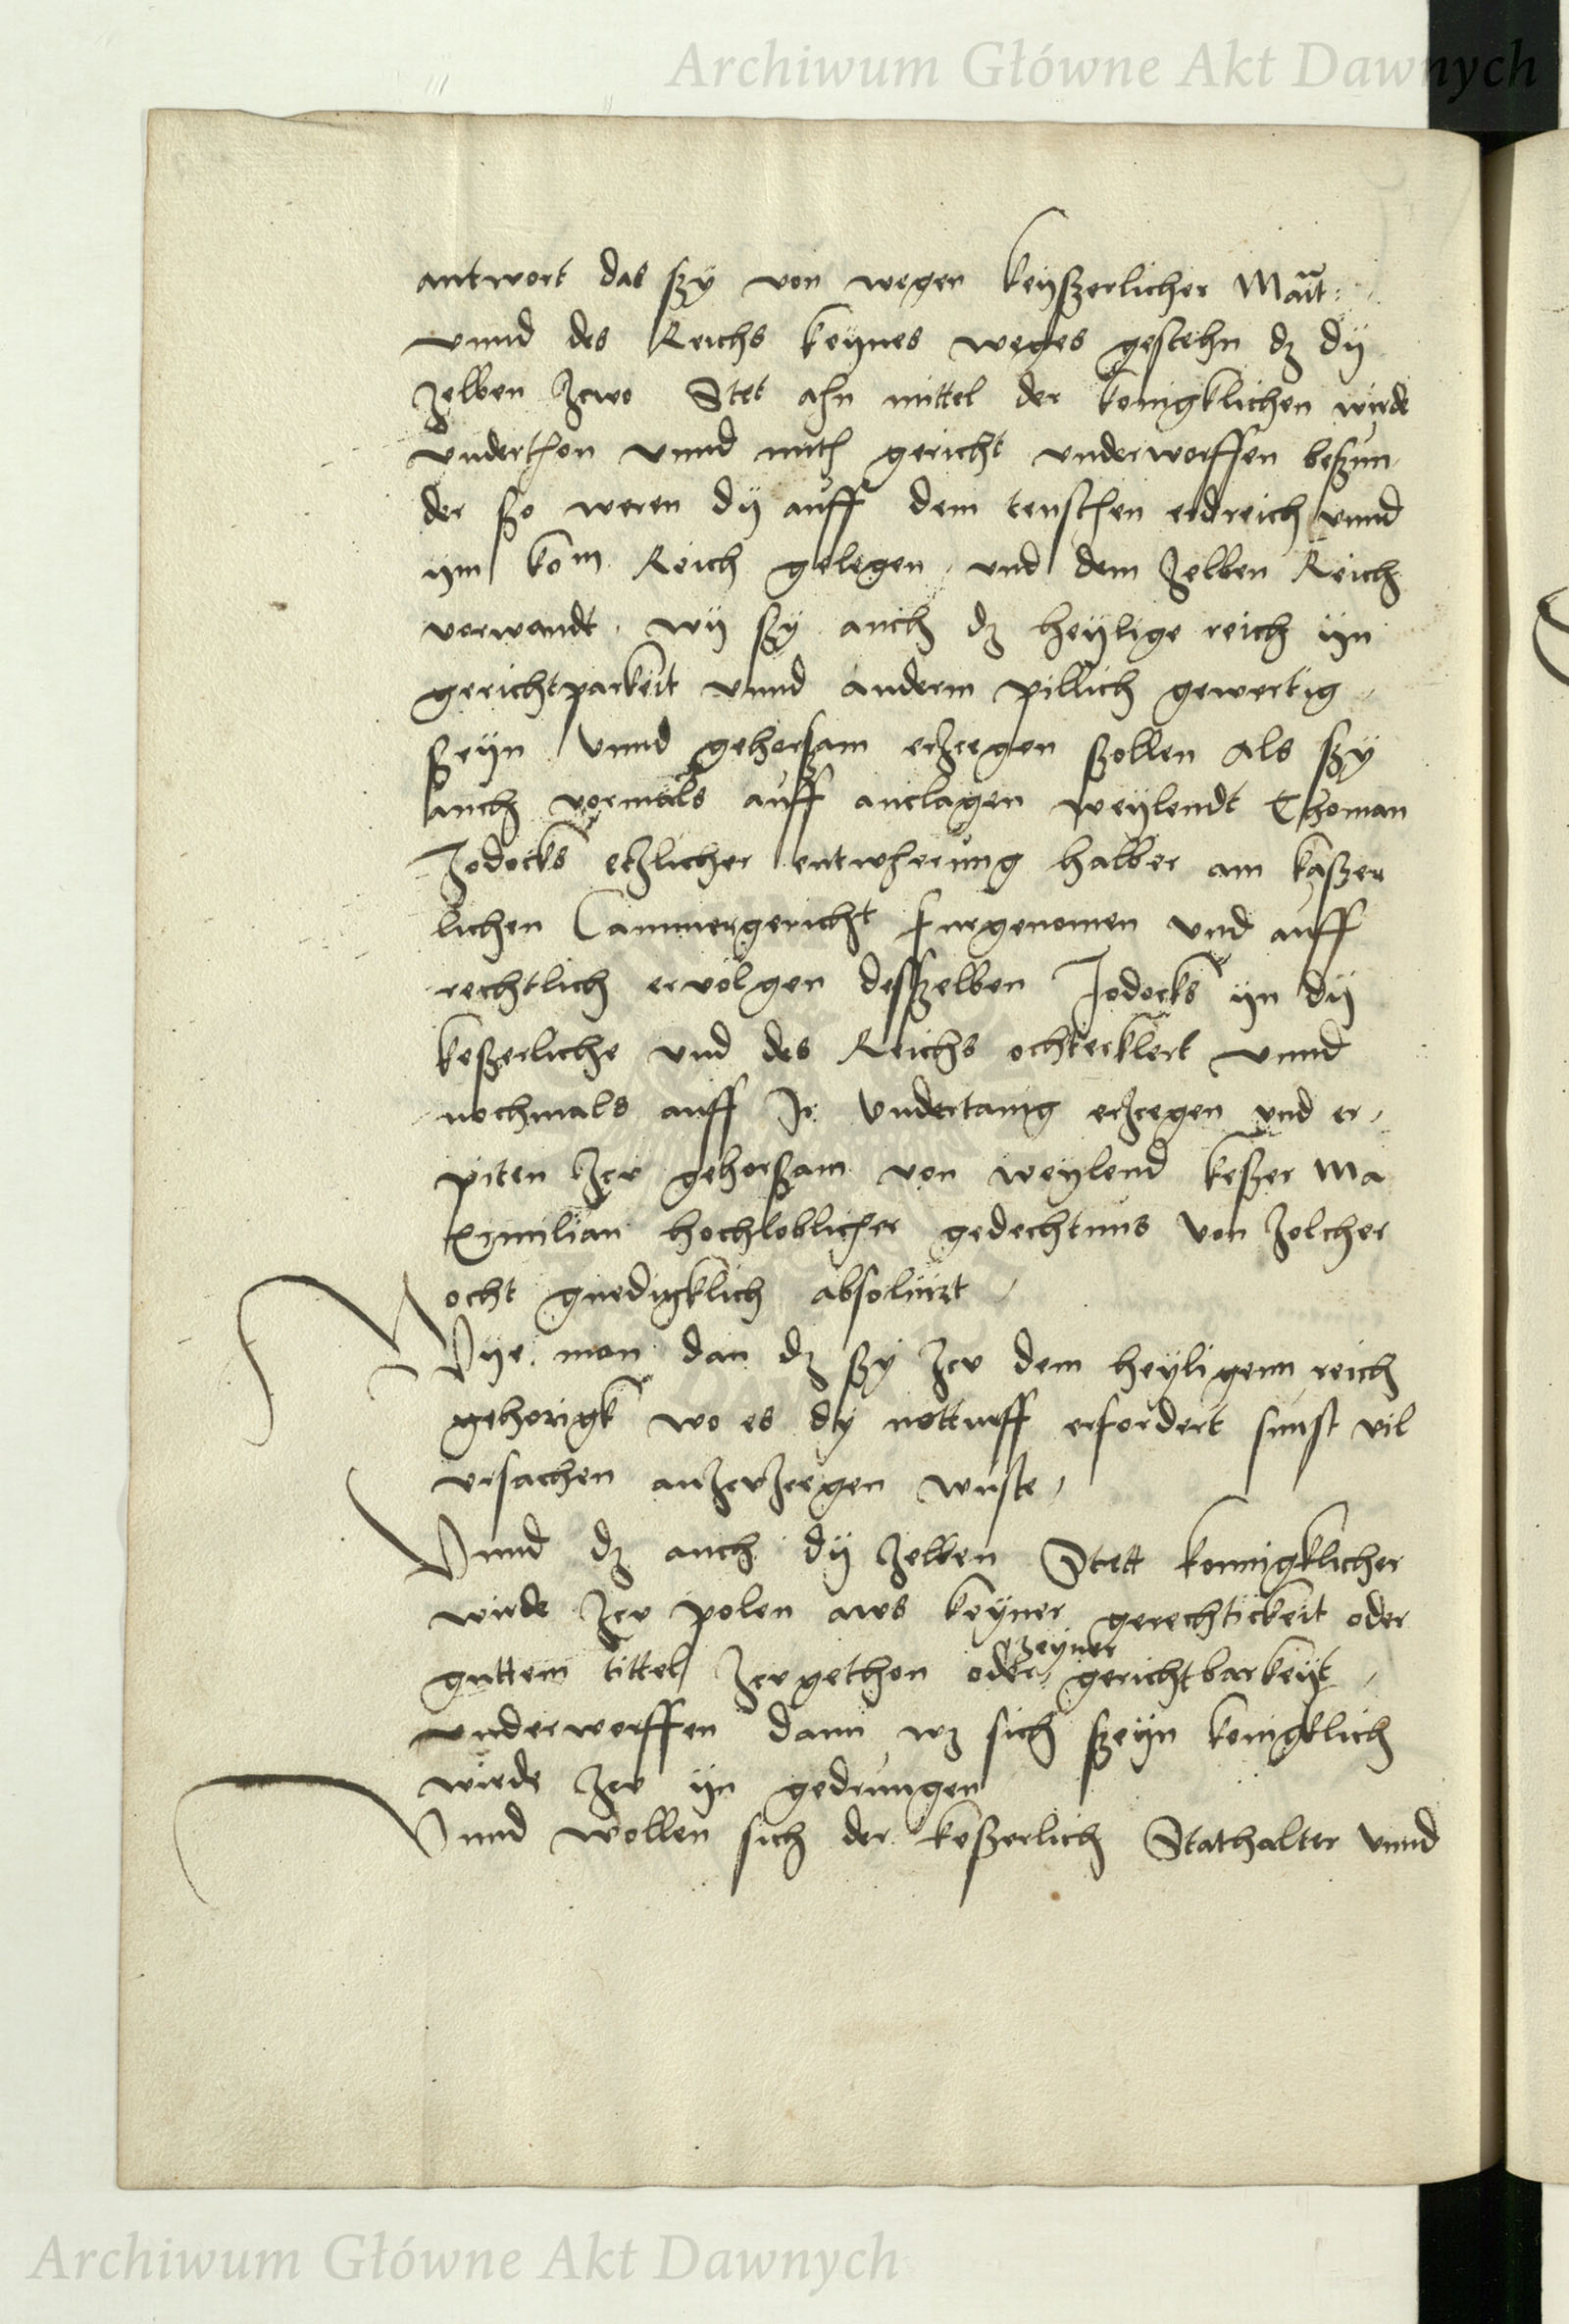 Archiwum Główne Akt Dawnych
antwort das ßy von wegen keyßerlicher Mait:
vnnd des Reichs keynes weges gestehn dz dy
zelben zcwo Stet ahn mittel der konigklichen wirde
vnderthon vnnd mith gericht vnderworffen beßun
der ßo weren dy auff dem teuschen erdreich vnnd
ym Rom Reich gelegen vnd dem zelben Reich
vorwandt wy ßy auch dz heylige reich yn
gerichtparkeit vnnd anderm pillich gewertig
ßeyn vnnd gehorßam erzcegen ßollen Als ßy
auch vormals auff anclagen weylendt Thoman
Jodocks etzlicher entwherung halber am kaßer
lichen Cammergericht furgenomen vnd auff
rechtlich ervolgen desßelben Jodocks yn dy
keßerliche vnd des Reichs ochterklert vnnd
nochmals auff Jr vndertanig erzcegen vnd er
piten zcu gehorßam von weylend keßer Ma
ximilian hochloblicher gedechtnus von zolcher
ocht gnedigklich absoluirt
Wye man dan dz ßy zcu dem heyligenn reich
gehorigk wo es dy notturff erfordert sunst vil
vrsachen anzcuzcegen wuste
Vnnd dz auch dy zelben Stett konnigklicher
wirde zcu polen aws keyner gerechtickeit oder
guttem tittel zcugethon oder ßeyner gerichtbarkeyt
vnderworffen dann wz sich ßeyn konigklich
wirde zcu yn gedrungen
Vnnd wollen sich der keßerlich Stathalter vnnd
Archiwum Główne Akt Dawnych